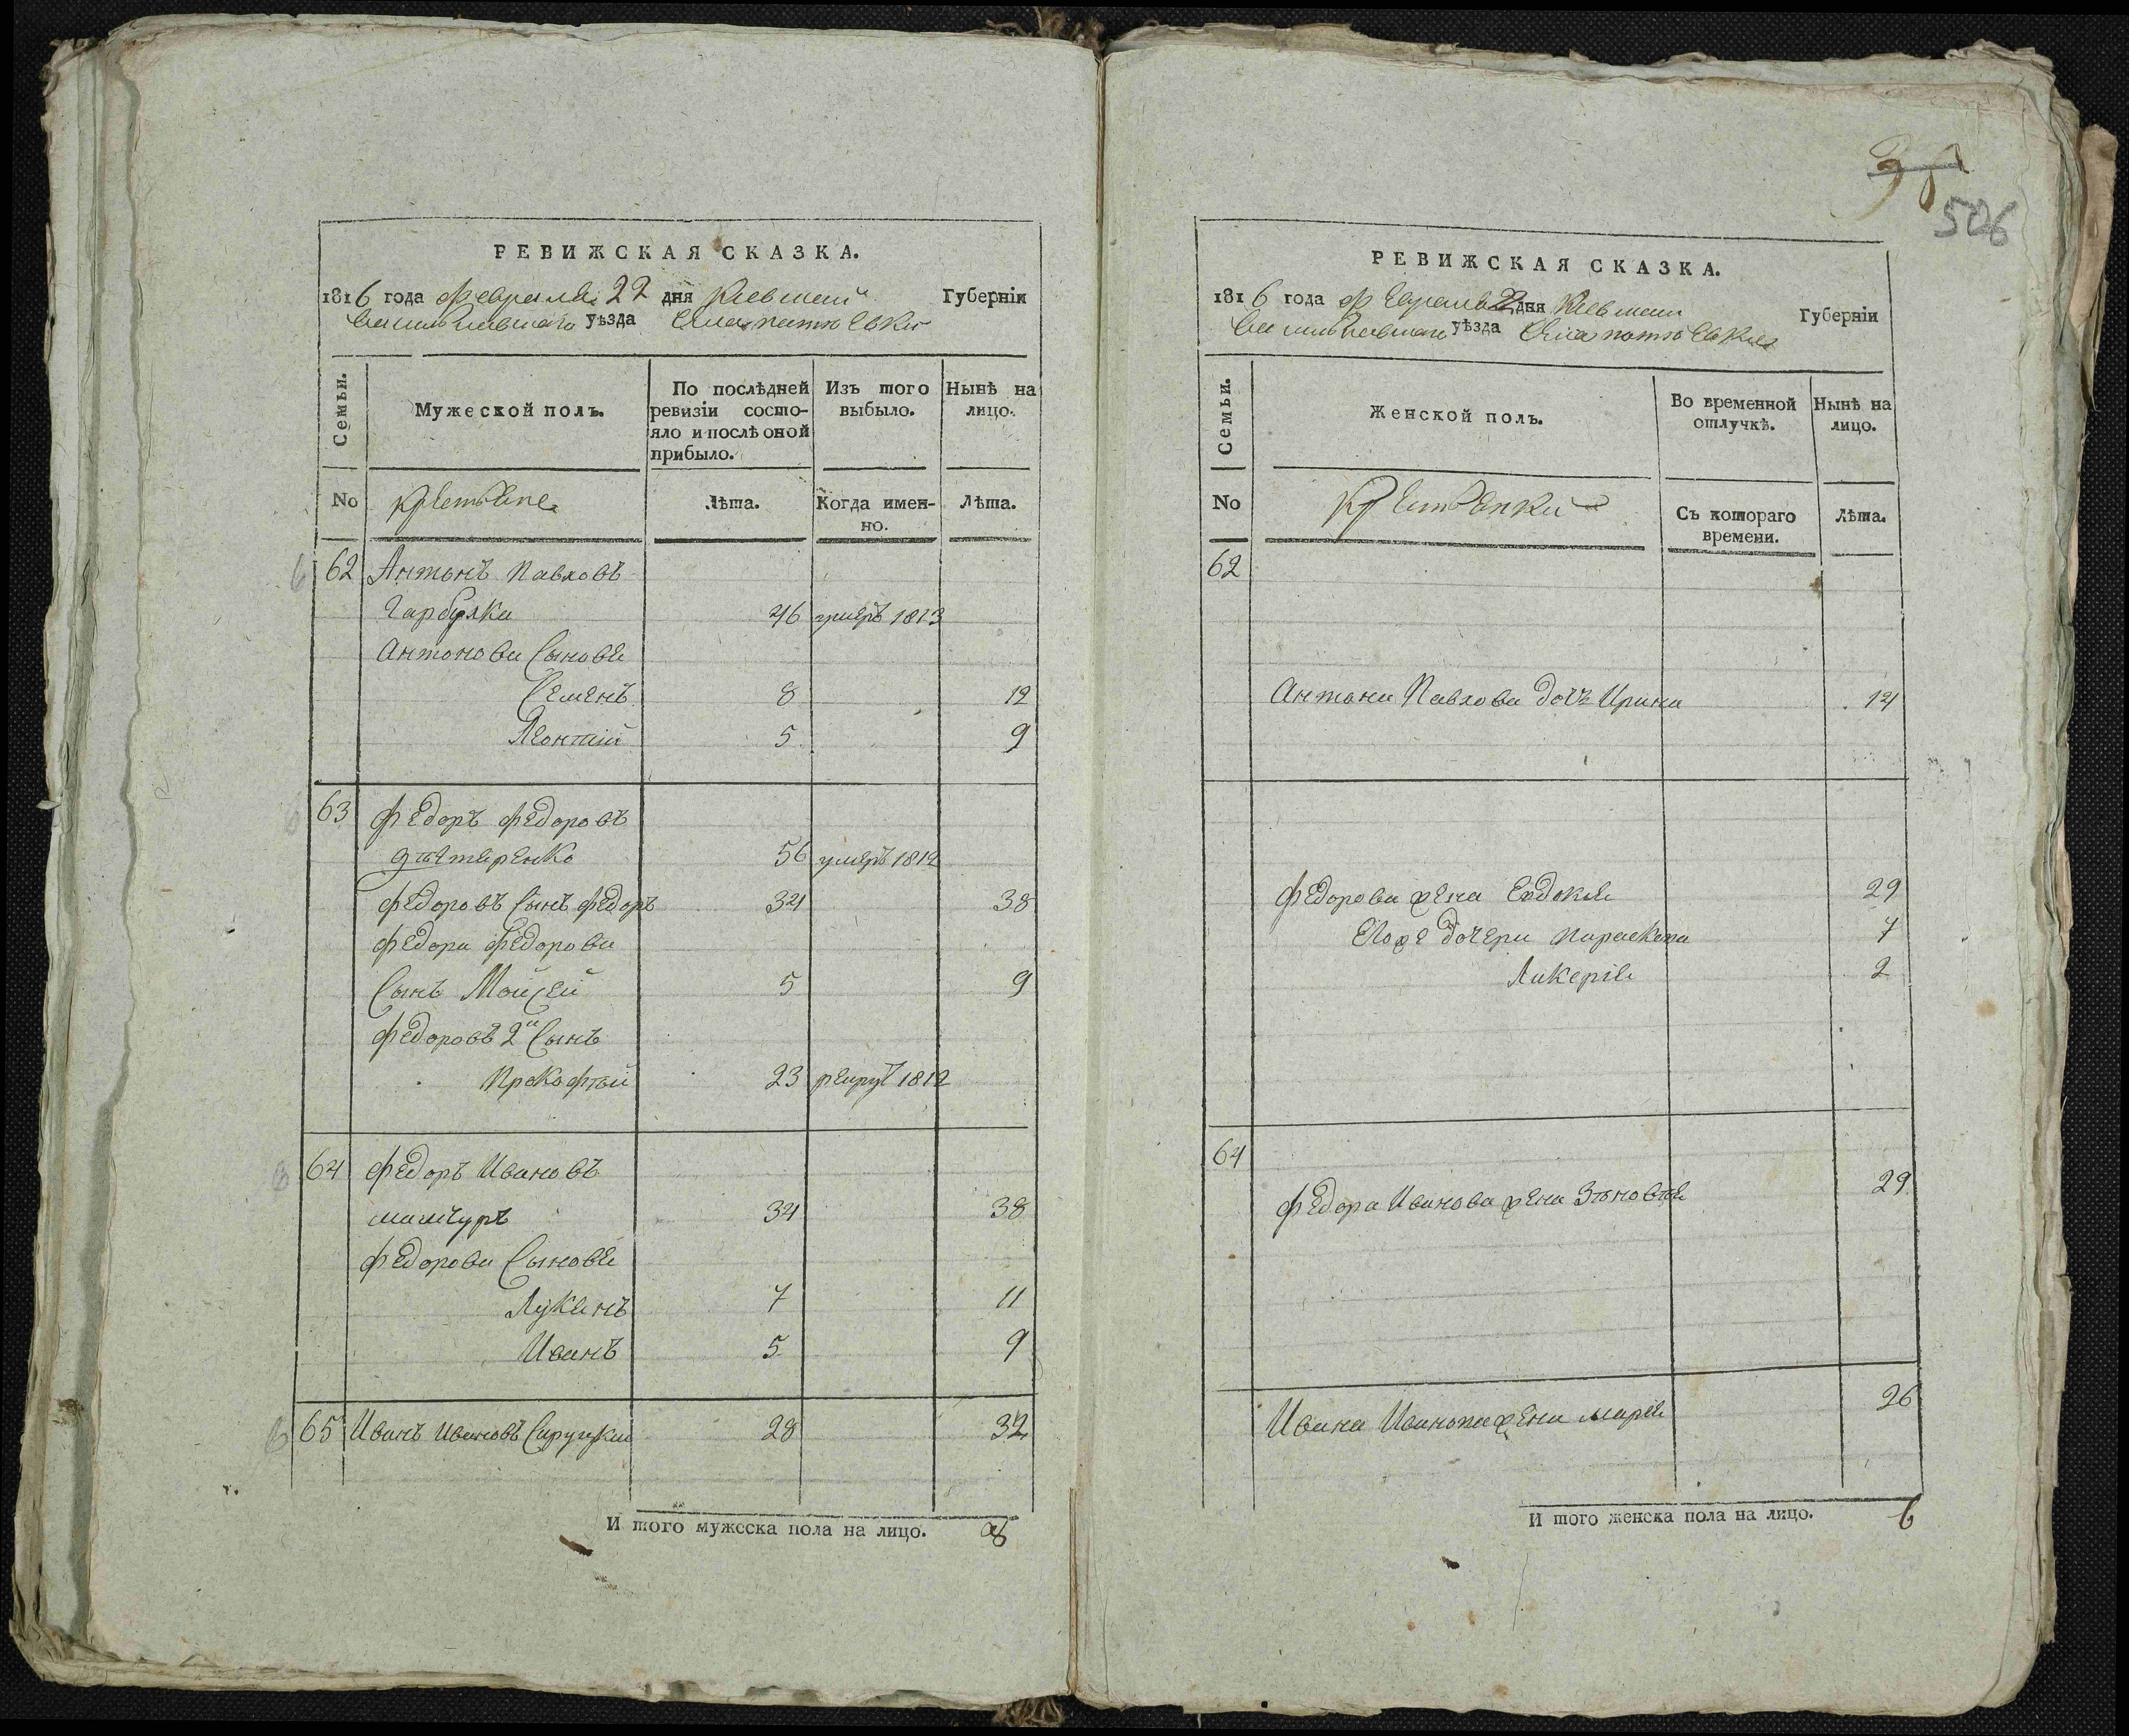 РЕВИЖСКАЯ СКАЗКА.
1816 года февраля 22 дня Киевской Губерніи
васильковскаго уѣзда Села
Семьи.
Мужеской полъ.
По послѣдней ревизіи состо-
яло и послѣ оной прибыло.
Изъ того выбыло.
Нынѣ на лицо.
No
крестьяне
Лѣта.
Когда имен-
но.
Лѣта.
62 Антонъ Павловъ
Гарбузка 46 умеръ 1813
Антонова Сыновья
Семенъ 8 12
Леонтій 5 9
63 Федоръ Федоровъ
56 умеръ 1812
Федоровъ Сынъ Федоръ 34 38
Федора Федорова
Сынъ Мойсей 5 9
Федоровъ 2й Сынъ
Прокофтий 23 рекрутъ 1812
64 Федоръ Ивановъ
34 38
Федорова Сыновья
Лукянъ 7 11
Иванъ 5 9
65 Иванъ Ивановъ 28 32
И того мужеска пола на лицо. 8
506
РЕВИЖСКАЯ СКАЗКА.
1816 года февраля 22 дня Киевской Губерніи
васильковскаго уѣзда Села
Семьи.
Женской полъ.
Во временной отлучкѣ.
Нынѣ на лицо.
No
крестьянки
Съ котораго времени.
Лѣта.
62
Антона Павлова дочъ Ирина 14
Федорова жена Евдокія 29
Егоже дочери Параскева 7
Ликерія 2
64
Федора Иванова жена Зѣновѣя 29
Ивана Иванова жена марія 26
И того женска пола на лицо. 6